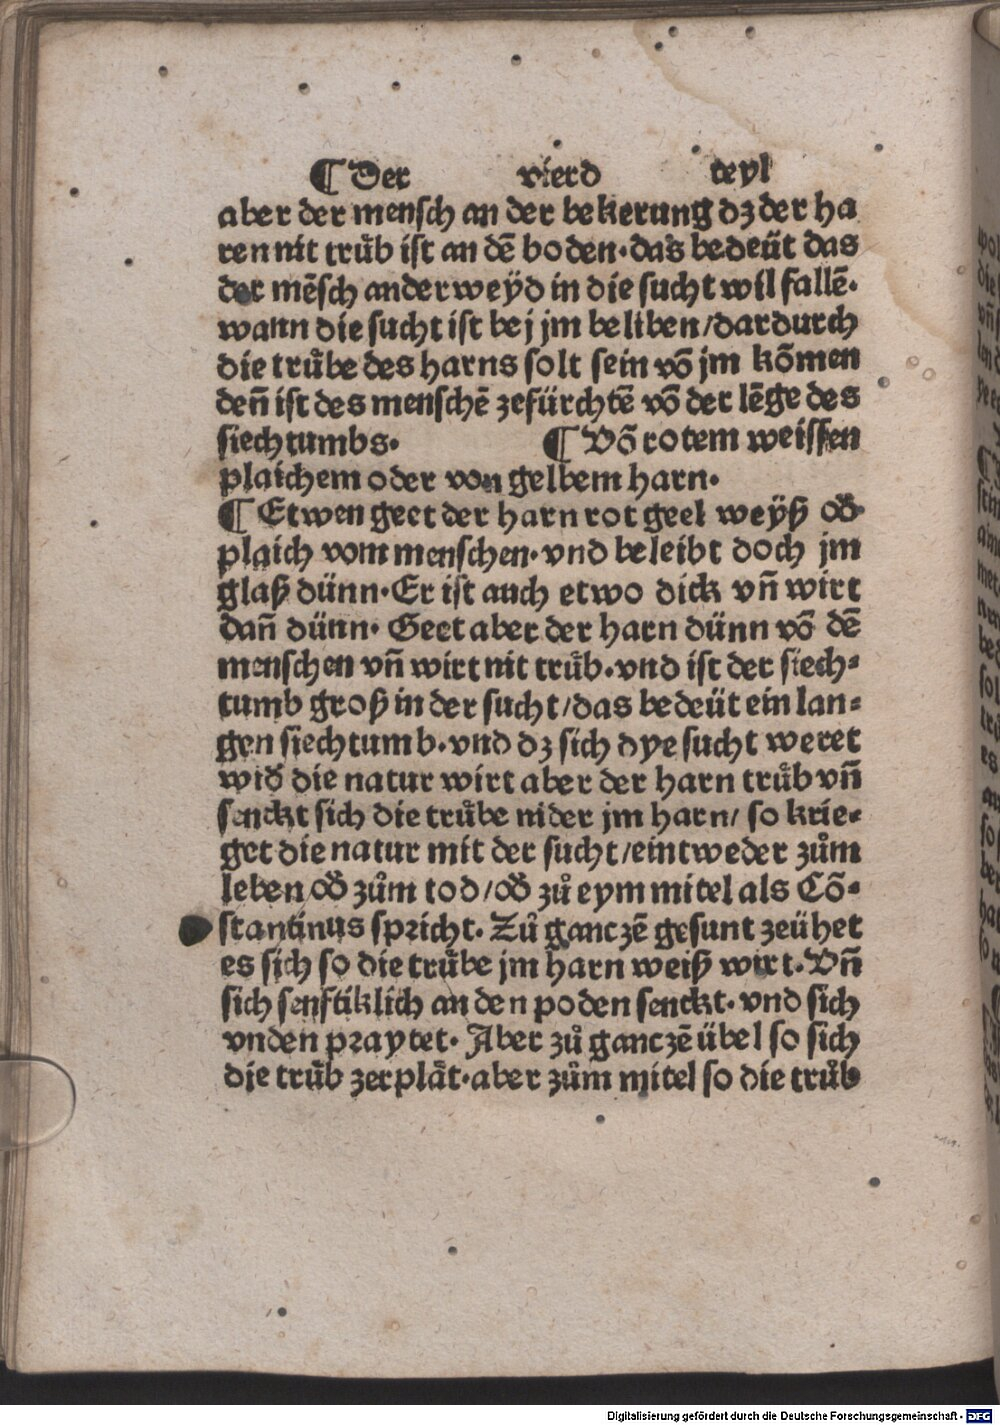 ¶ Der vierd teyl
aber der mensch an der bekerung dz der ha
ren nit trüb ist an dē boden·das bedeüt das
der mēsch anderweyd in die sucht wil fallē·
wann die sucht ist bej jm beliben/dardurch
die trübe des harns solt sein vō jm kōmen
deñ ist des menschē zefürchtē vō der lēge des
siechtumbs· ¶ Vō rotem weissen
plaichem oder von gelbem harn·
¶ Etwen geet der harn rot geel weyß oď
plaich vom menschen·vnd beleibt doch jm
glaß dünn·Er ist auch etwo dick vñ wirt
dañ dünn· Geet aber der harn dünn vō dē
menschen vñ wirt nit trüb·vnd ist der siech⸗
tumb groß in der sucht/das bedeüt ein lan⸗
gen siechtumb·vnd dz sich dye sucht weret
wiď die natur wirt aber der harn trüb vñ
senckt sich die trübe nider jm harn/ so krie⸗
get die natur mit der sucht/eintweder zům
leben oď zům tod/oď zů eym mitel als Cō⸗
stantinus spricht· Zů ganczē gesunt zeühet
es sich so die trübe jm harn weiß wirt·Vñ
sich senftiklich an den poden senckt·vnd sich
vnden praytet· Aber zů ganczē übel so sich
die trüb zerplät·aber zům mitel so die trüb
Digitalisierung gefördert durch die Deutsche Forschungsgemeinschaft - DFG